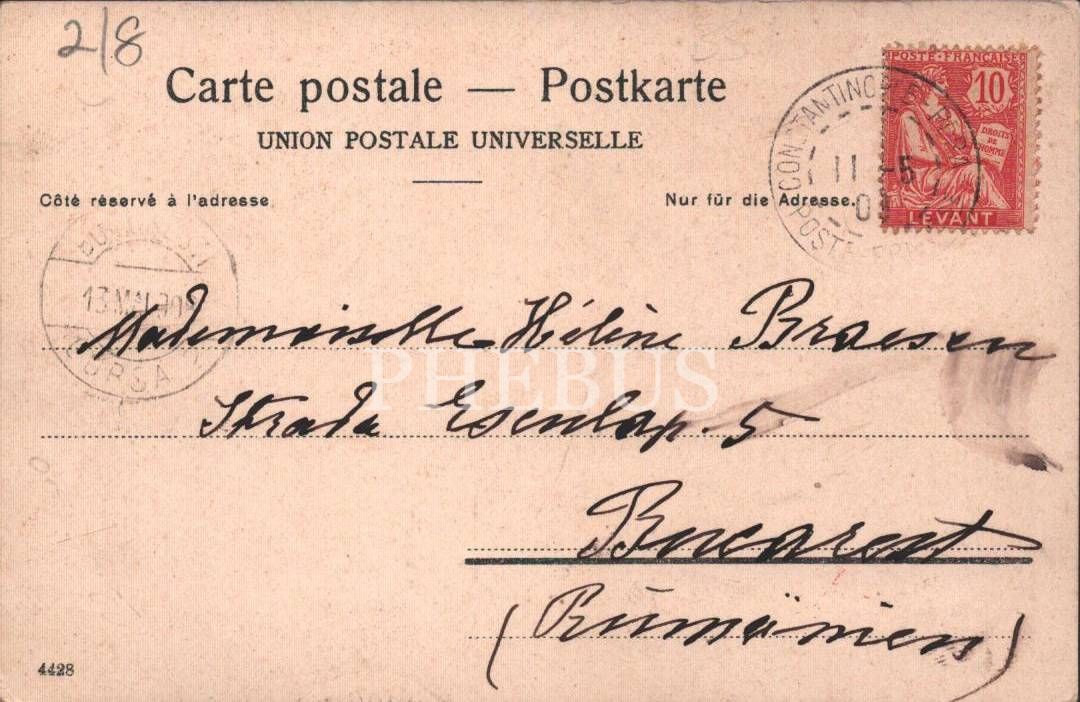 2/8
Carte postale — Postkarte
UNION POSTALE UNIVERSELLE
Côté réservé à l'adresse
Nur für die Adresse.
POSTE FRANÇAISE
10
DROITS DE L'HOMME
LEVANT
CONSTANTINOPLE PERA
11 -5
POSTE
13 MAI
Mademoiselle Hélène Braesen
PHEBUS
Strada Esculap. 5
Bucarest
(Rumänien)
4428